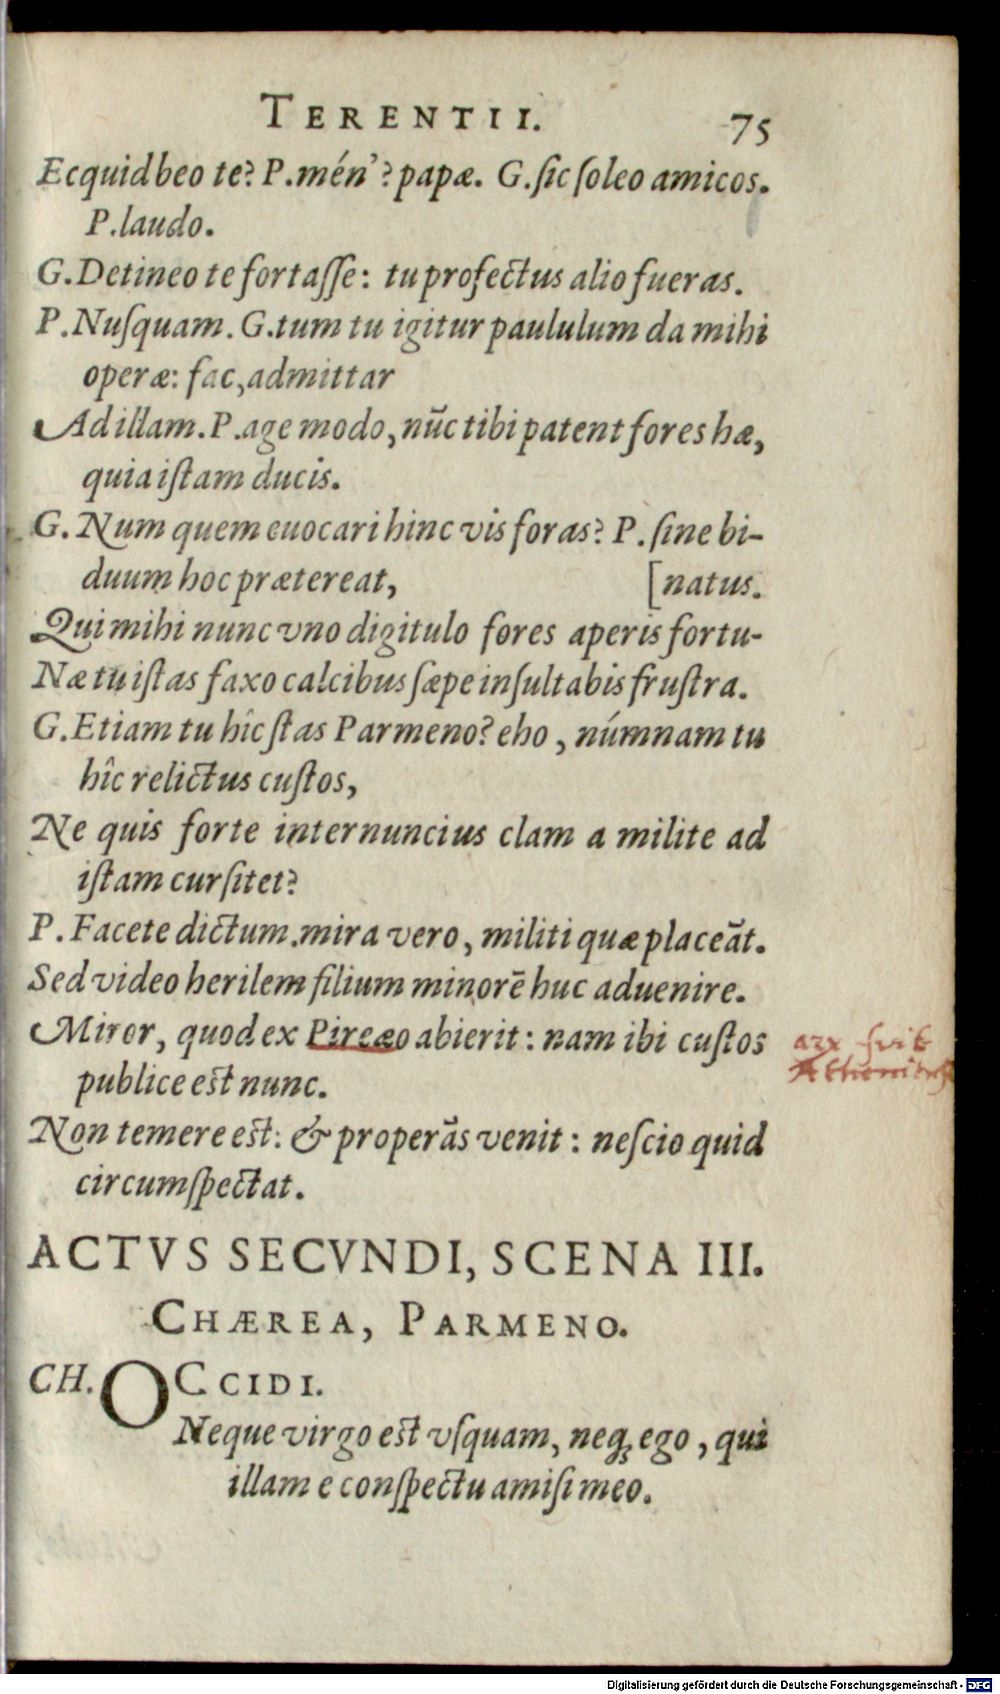 TERENTII. 75
Ecquid beo te? P. mén'? papæ. G. ſic ſoleo amicos.
P. laudo.
G. Detineo te fortaſſe: tu profectus alio fueras.
P. Nuſquam. G. tum tu igitur paululum da mihi
operæ: fac, admittar
Ad illam. P. age modo, nūc tibi patent fores hæ,
quia iſtam ducis.
G. Num quem euocari hinc vis foras? P. ſine bi-
duum hoc prætereat, [natus.
Qui mihi nunc vno digitulo fores aperis fortu-
Næ tu iſtas faxo calcibus ſæpe inſultabis fruſtra.
G. Etiam tu hîc ſtas Parmeno? eho, númnam tu
hîc relictus cuſtos,
Ne quis forte internuncius clam a milite ad
iſtam curſitet?
P. Facete dictum. mira vero, militi quæ placeāt.
Sed video herilem filium minorē huc aduenire.
Miror, quod ex Piræo abierit: nam ibi cuſtos
publice est nunc.
arx fuit
Non temere est: & properās venit: neſcio quid
circumſpectat.
ACTVS SECVNDI, SCENA III.
CHÆREA, PARMENO.
CH. OCCIDI.
Neque virgo est vſquam, neq; ego, qui
illam e conſpectu amiſi meo.
Digitalisierung gefördert durch die Deutsche Forschungsgemeinschaft - DFG